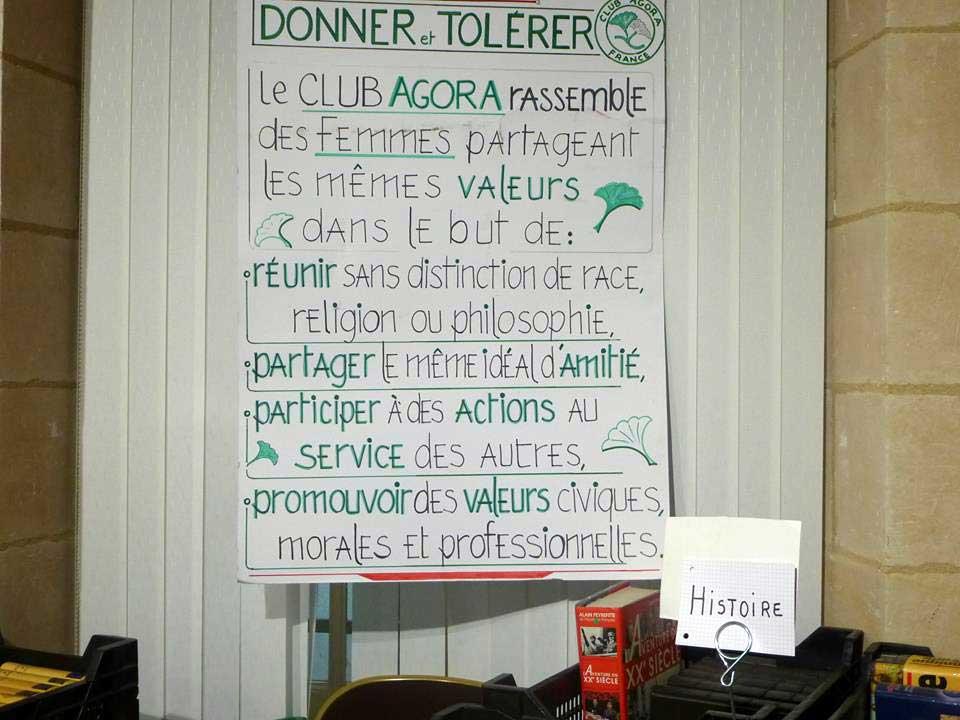 DONNER et TOLÉRER
CLUB AGORA
FRANCE
le CLUB AGORA RASSEMBLE
des FEMMES PARTAGEANT
les mêmes VALEURS
dans le but de:
RÉUNIR SANS distinction de RACE,
religion ou philosophie,
PARTAGER le même idéal d'AMITIÉ,
participer À des ACTIONS AU
SERVICE des AUTRES,
promouvoir des VALEURS civiques,
morales et professionnelles.
HISTOIRE
ALAIN PEYREFITTE
L'AVENTURE DU
XXe SIÈCLE
L'AVENTURE
XXe SIÈCLE